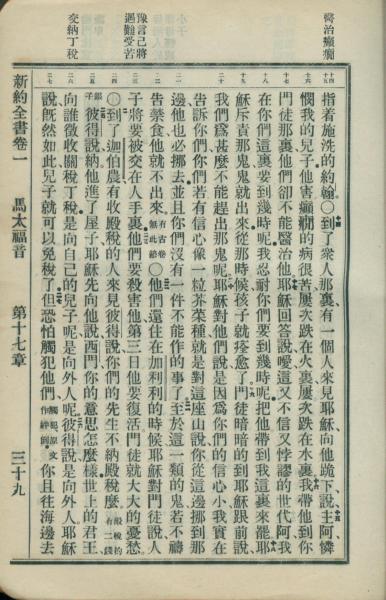 醫治癲癇
豫言己將
遇難受苦
交納丁稅
指着施洗的約翰○到了衆人那裏有一個人來見耶穌向他跪下說主阿憐
憫我的兒子他害癲癇的病很苦屢次跌在火裏屢次跌在水裏我帶他到你
門徒那裏他們卻不能醫治他耶穌回答說噯這又不信又悖謬的世代阿我
在你們這裏要到幾時呢我忍耐你們要到幾時呢把他帶到我這裏來罷耶
穌斥責那鬼鬼就出來從那時候孩子就痊愈了門徒暗暗的到耶穌跟前說
我們爲甚麼不能趕出那鬼呢耶穌對他們說是因爲你們的信心小我實在
告訴你們你們若有信心像一粒芥菜種就是對這座山說你從這邊挪到那
邊他也必挪去並且你們沒有一件不能作的事了至於這一類的鬼若不禱
告禁食他就不出來有古卷無此節○他們還住在加利利的時候耶穌對門徒說人
子將要被交在人手裏他們要殺害他第三日他要復活門徒就大大的憂愁
○到了迦伯農有收殿稅的人來見彼得說你們的先生不納殿稅麼殿稅約有二錢
銀彼得說納他進了屋子耶穌先向他說西門你的意思怎麼樣世上的君王
向誰徵收關稅丁稅是向自己的兒子呢是向外人呢彼得說是向外人耶穌
說旣然如此兒子就可以免稅了但恐怕觸犯他們觸犯原文作絆倒你且往海邊去
新約全書卷一 馬太福音 第十七章 三十九